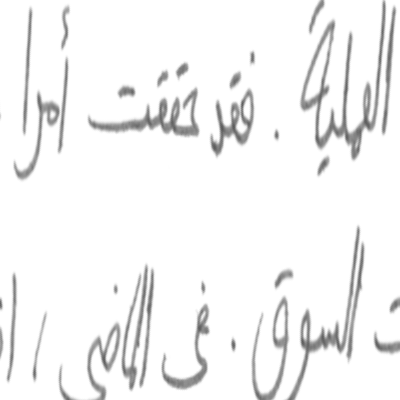 العملية . فقد حققت أمرا
السوق . في الماضي ،